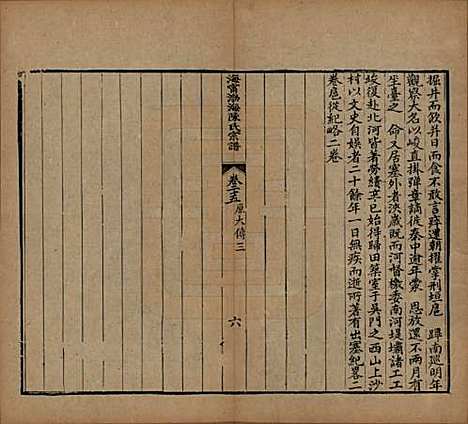 掘井而飲并日而食不敢言疏遷朝擢掌刑垣扈　蹕南巡明年
觀察大名以峻直掛彈章謫從秦中逾年蒙　恩放還不兩月有
坐臺之　命又居塞外者浹歲既而河督檄委南河堤壩諸工工
竣復赴北河皆著勞績辛巳始得歸田築室于吳門之西山上沙
村以文史自娛者二十餘年一日無疾而逝所著有出塞紀畧二
卷扈從紀略二卷
海寧渤海陳氏宗譜
卷二十五
大傳三
六